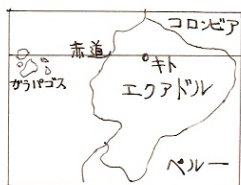 コロンビア
赤道
キト
ガラパゴス
エクアドル
ペルー